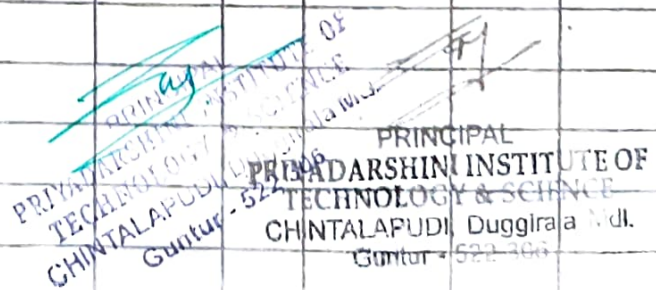 PRINCIPAL
PRIYADARSHINI INSTITUTE OF
TECHNOLOGY & SCIENCE
CHINTALAPUDI, Duggirala Mdl.
Guntur - 522 306
PRINCIPAL
PRIYADARSHINI INSTITUTE OF
TECHNOLOGY & SCIENCE
CHINTALAPUDI, Duggirala Mdl.
Guntur - 522 306